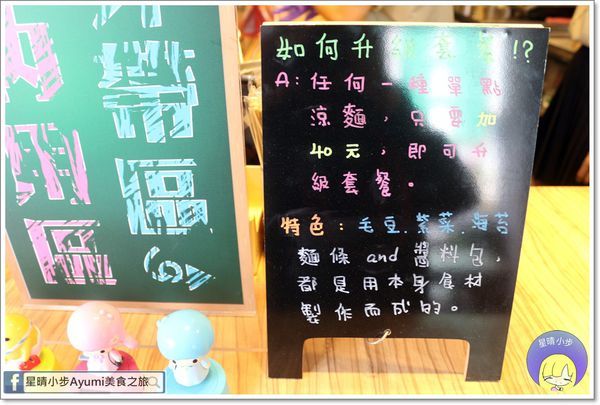 如何升級套餐!?
A:任何一種單點
涼麵,只要加
40元,即可升
級套餐。
特色:毛豆.紫菜.海苔
麵條 and 醬料包,
都是用本身食材
製作而成的。
星晴小步
星晴小步Ayumi美食之旅